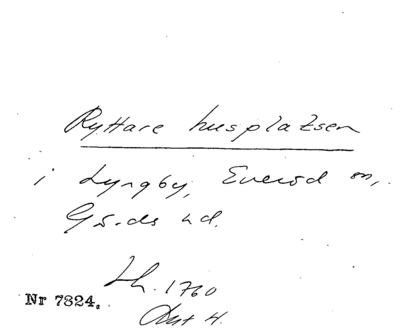 Ryttare husplatsen
i Lyngby, Everöd sn,
Gärds hd.
Lh. 1760
Nr 7824.
Akt 4.